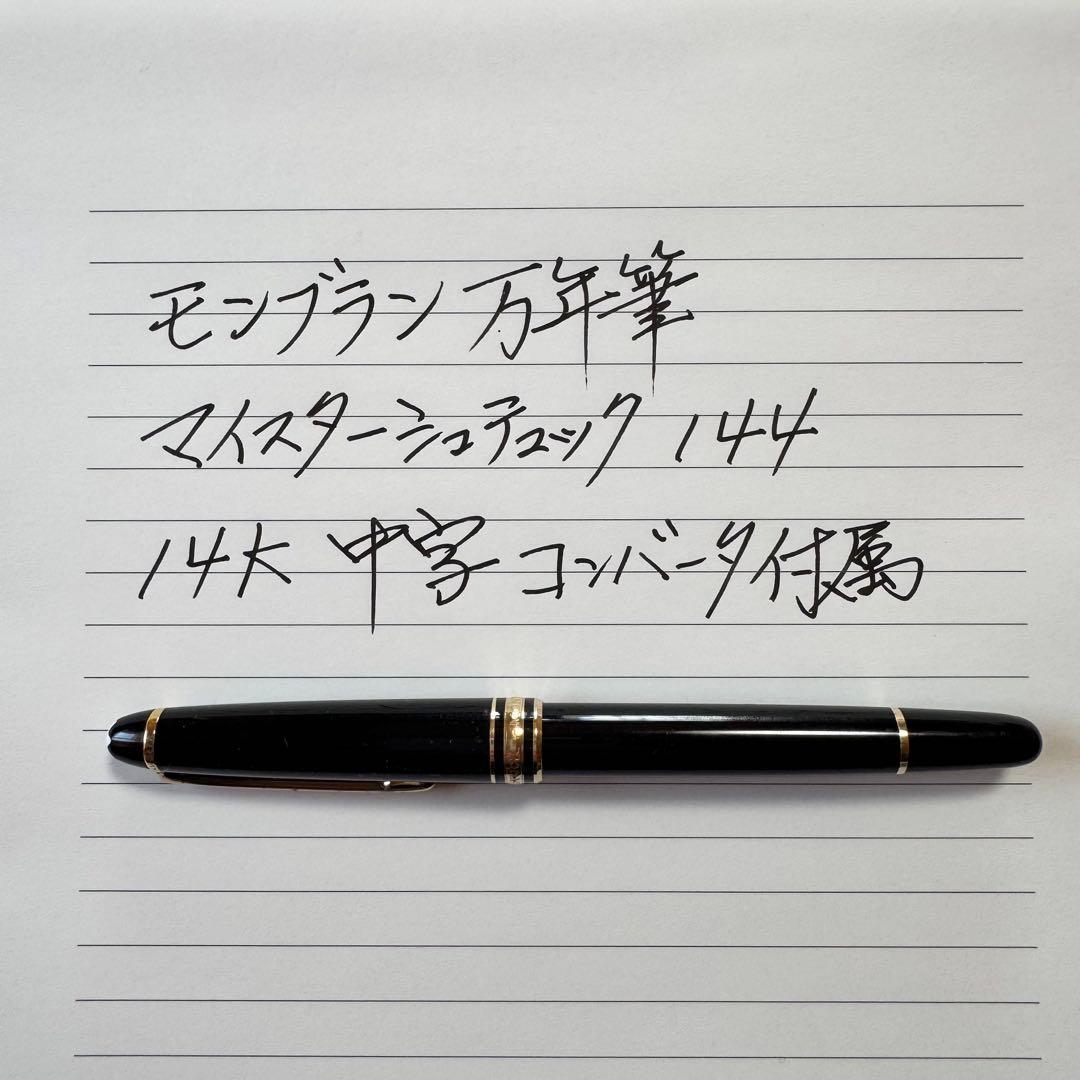 モンブラン 万年筆
マイスターシュテュック 144
14K 中字 コンバータ付属